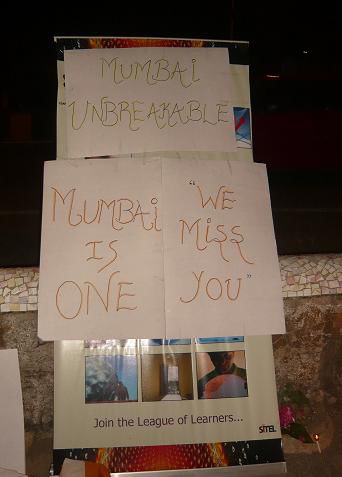 MUMBAi
UNBREAKABLE
MUMBAi
IS
ONE
"WE
MiSS
YOU"
Join the League of Learners...
SITEL